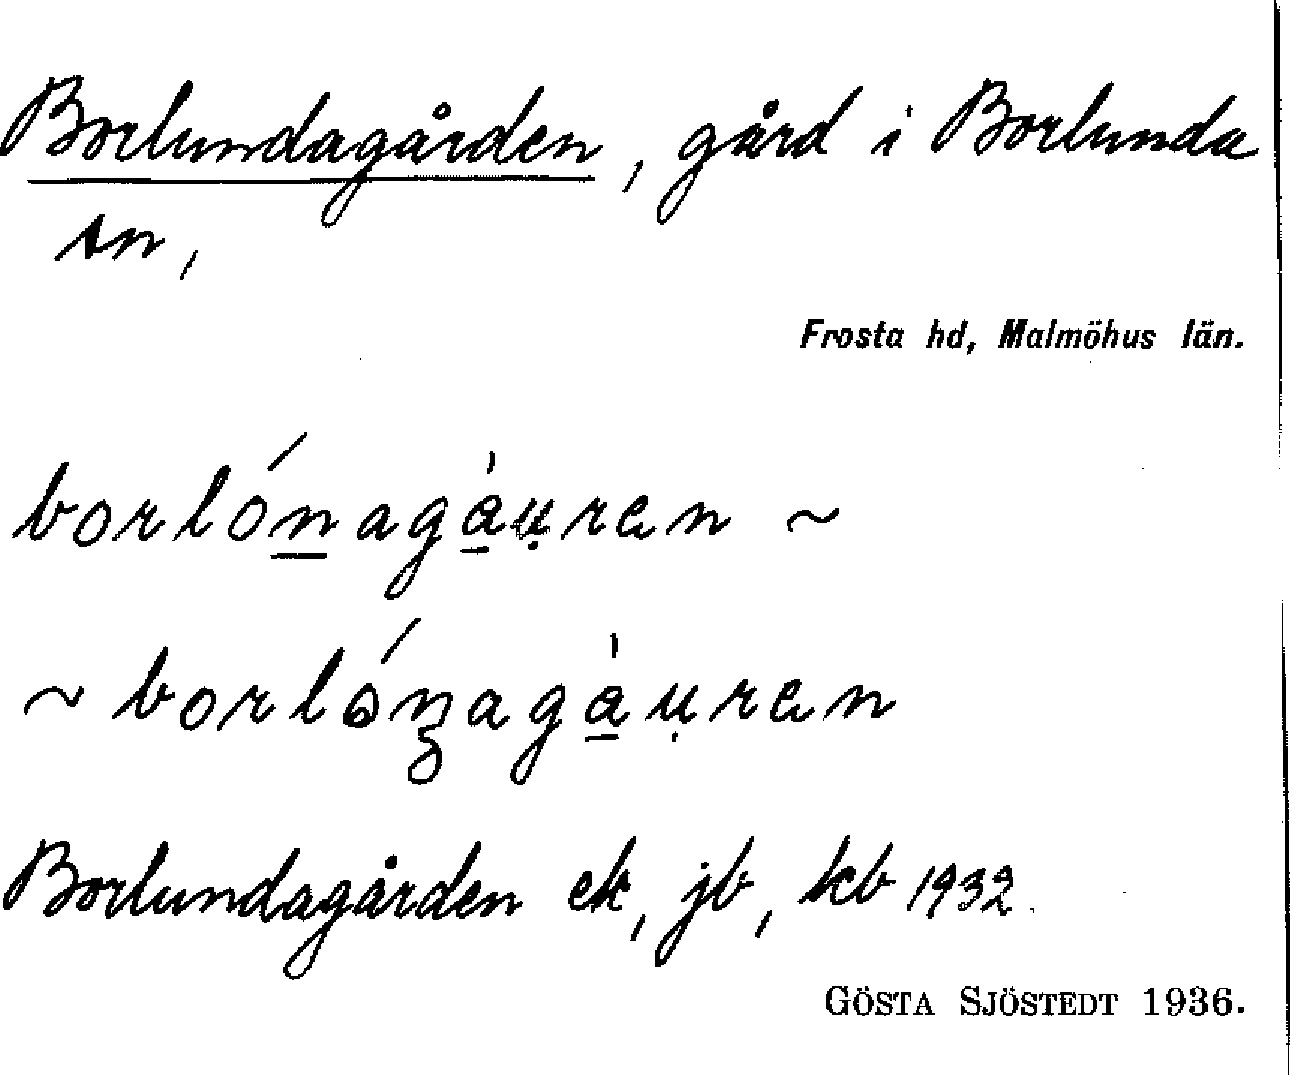 Borlundagården, gård i Borlunda
sn,
Frosta hd, Malmöhus län.
borlónagàu̥ren ~
~ borlónagàu̥ren
Borlundagården ek, jb, kb 1932.
GÖSTA SJÖSTEDT 1936.